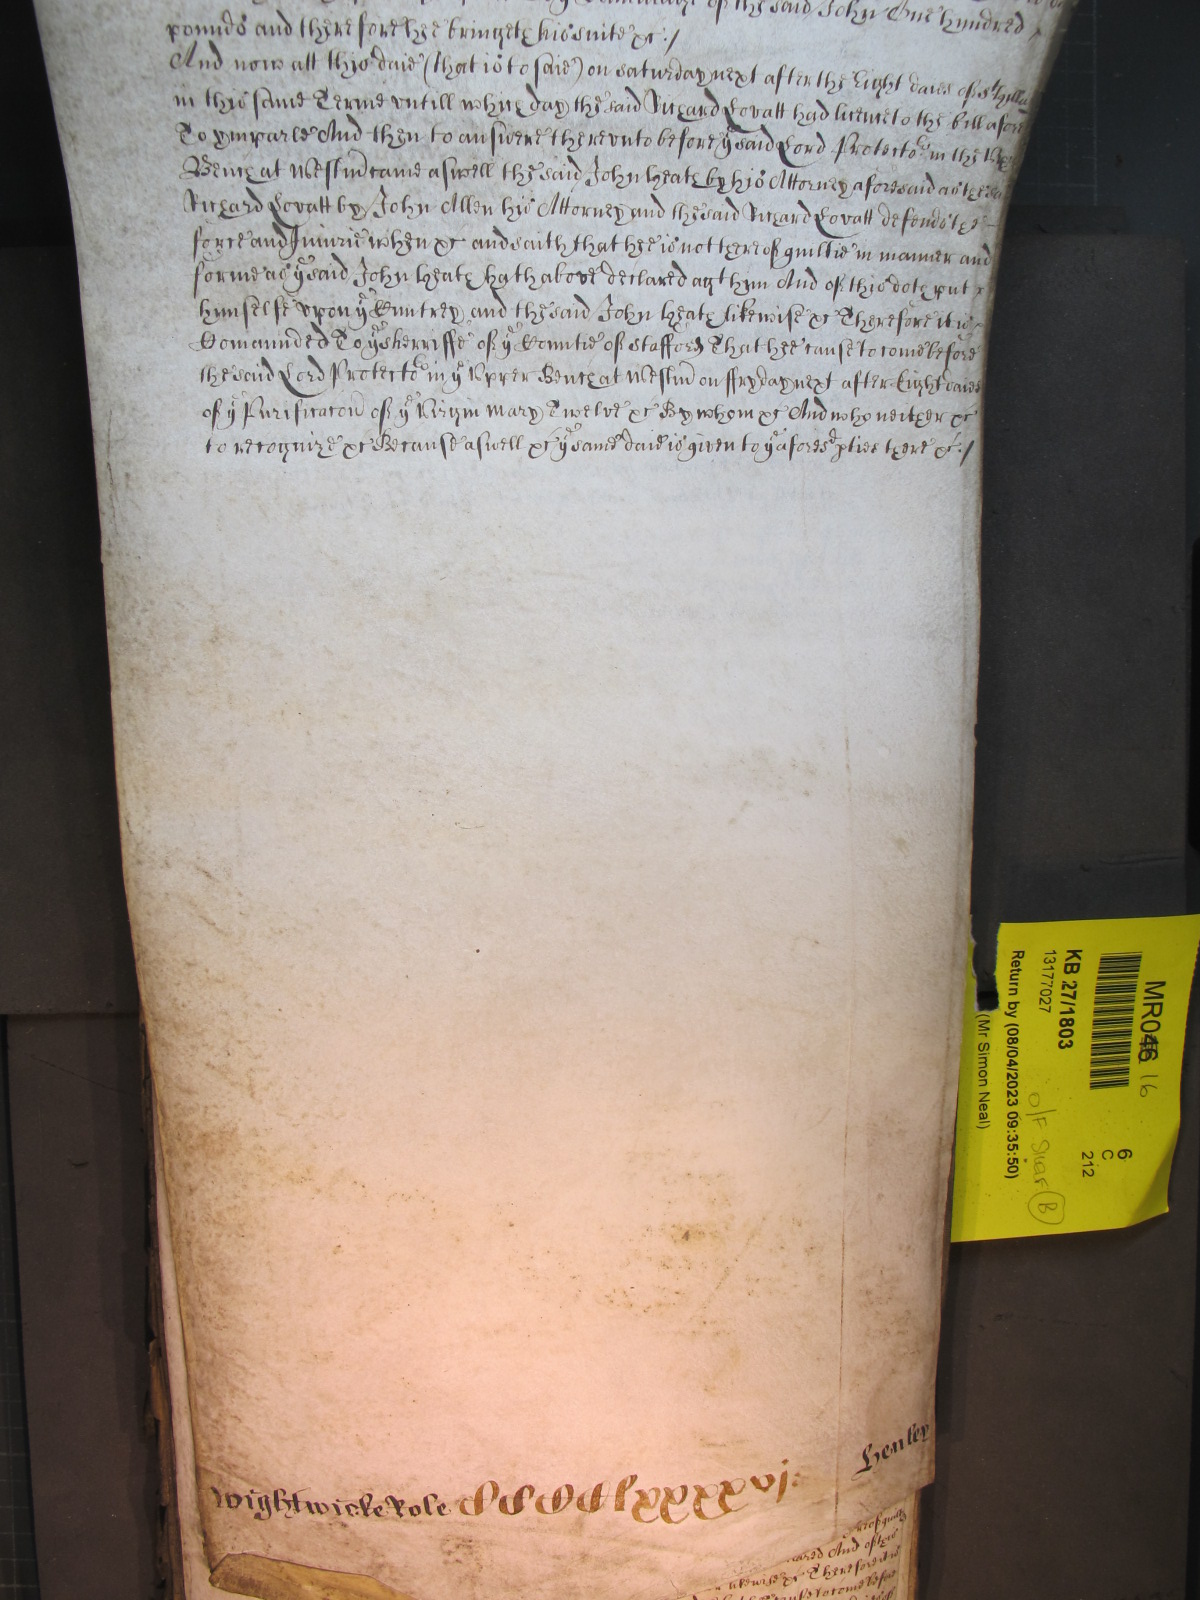 of the said John One hundred
pounds and therefore hee bringeth his suite &c:/
And now att this daie (that is to saie) on Saturday next after the Eight daies of St Hilla
in this same Terme untill which day the said Richard Lovatt had licence to the bill afore
To ymparle And then to answere thereunto before ye said Lord Protector in the Upp
Bench at Westm came aswell the said John Heath by his Attorney aforesaid as the sa
Richard Lovatt by John Allen his Attorney and the said Richard Lovatt defends the
force and Iniurie when &c and saith that hee is not thereof guiltie in manner and
forme as ye said John Heath hath above declared agt him And of this doth put
himselfe upon ye Cuntrey and the said John Heath likewise &c Therefore it is
Comaunded To ye Sherriffe of ye Countie of Stafford That hee cause to come before
the said Lord Protector in ye Upper Bench at Westm on ffryday next after Eight daies
of ye Purificacon of ye Virgin Mary Twelve &c By whom &c And who neither &c
to recognize &c Because aswell &c ye same daie is given to ye aforesd pties there &c:/
Henley
Wightwicke Role CCCCClxxxxvj:
ared And of this
likewise &c Therefore it is
cause to come before
MR046 16
KB 27/1803
13177027
Return by (08/04/2023 09:35:50)
(Mr Simon Neal)
6
C
212
O/F Shar B